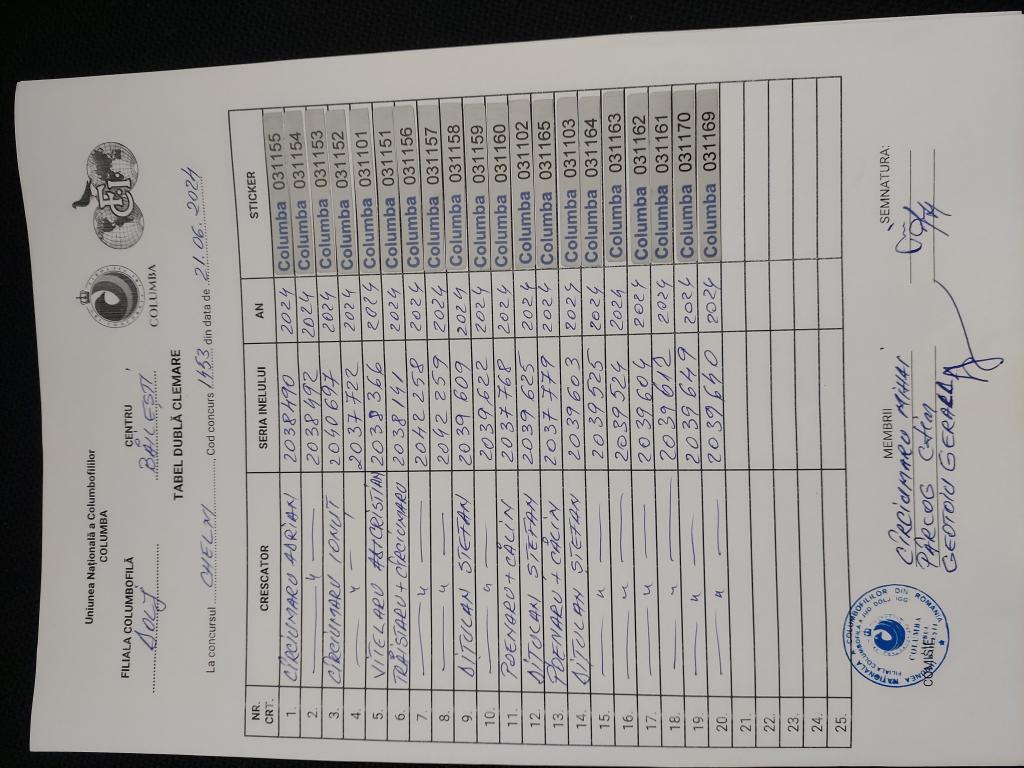 Uniunea Națională a Columbofililor
COLUMBA
COLUMBA
FILIALA COLUMBOFILĂ CENTRU
Dolj BĂILEȘTI
TABEL DUBLĂ CLEMARE
La concursul CHELM, Cod concurs 1453 din data de 21.06.2024
NR. CRT. CRESCATOR SERIA INELULUI AN STICKER
1. CÎRCIUMARU ADRIAN 2038490 2024 Columba 031155
2. — „ — 2038492 2024 Columba 031154
3. CÎRCIUMARU IONUȚ 2040697 2024 Columba 031153
4. — „ — 2037722 2024 Columba 031152
5. VITELARU AL.CRISTIAN 2038366 2024 Columba 031101
6. TRĂISTARU+CÎRCIUMARU 2038141 2024 Columba 031151
7. — „ — 2042258 2024 Columba 031156
8. — „ — 2042259 2024 Columba 031157
9. DITULAN STEFAN 2039609 2024 Columba 031158
10. — „ — 2039622 2024 Columba 031159
11. POENARU+CĂLIN 2037768 2024 Columba 031160
12. DITULAN STEFAN 2039625 2024 Columba 031102
13. POENARU+CĂLIN 2037779 2024 Columba 031165
14. DITULAN STEFAN 2039603 2024 Columba 031103
15. — „ — 2039525 2024 Columba 031164
16. — „ — 2039524 2024 Columba 031163
17. — „ — 2039604 2024 Columba 031162
18. — „ — 2039612 2024 Columba 031161
19. — „ — 2039649 2024 Columba 031170
20. — „ — 2039640 2024 Columba 031169
21.
22.
23.
24.
25.
COMISIE MEMBRII SEMNATURA:
CÎRCIUMARU MIHAI
PÂRCOG
GEOTOIU GERARD